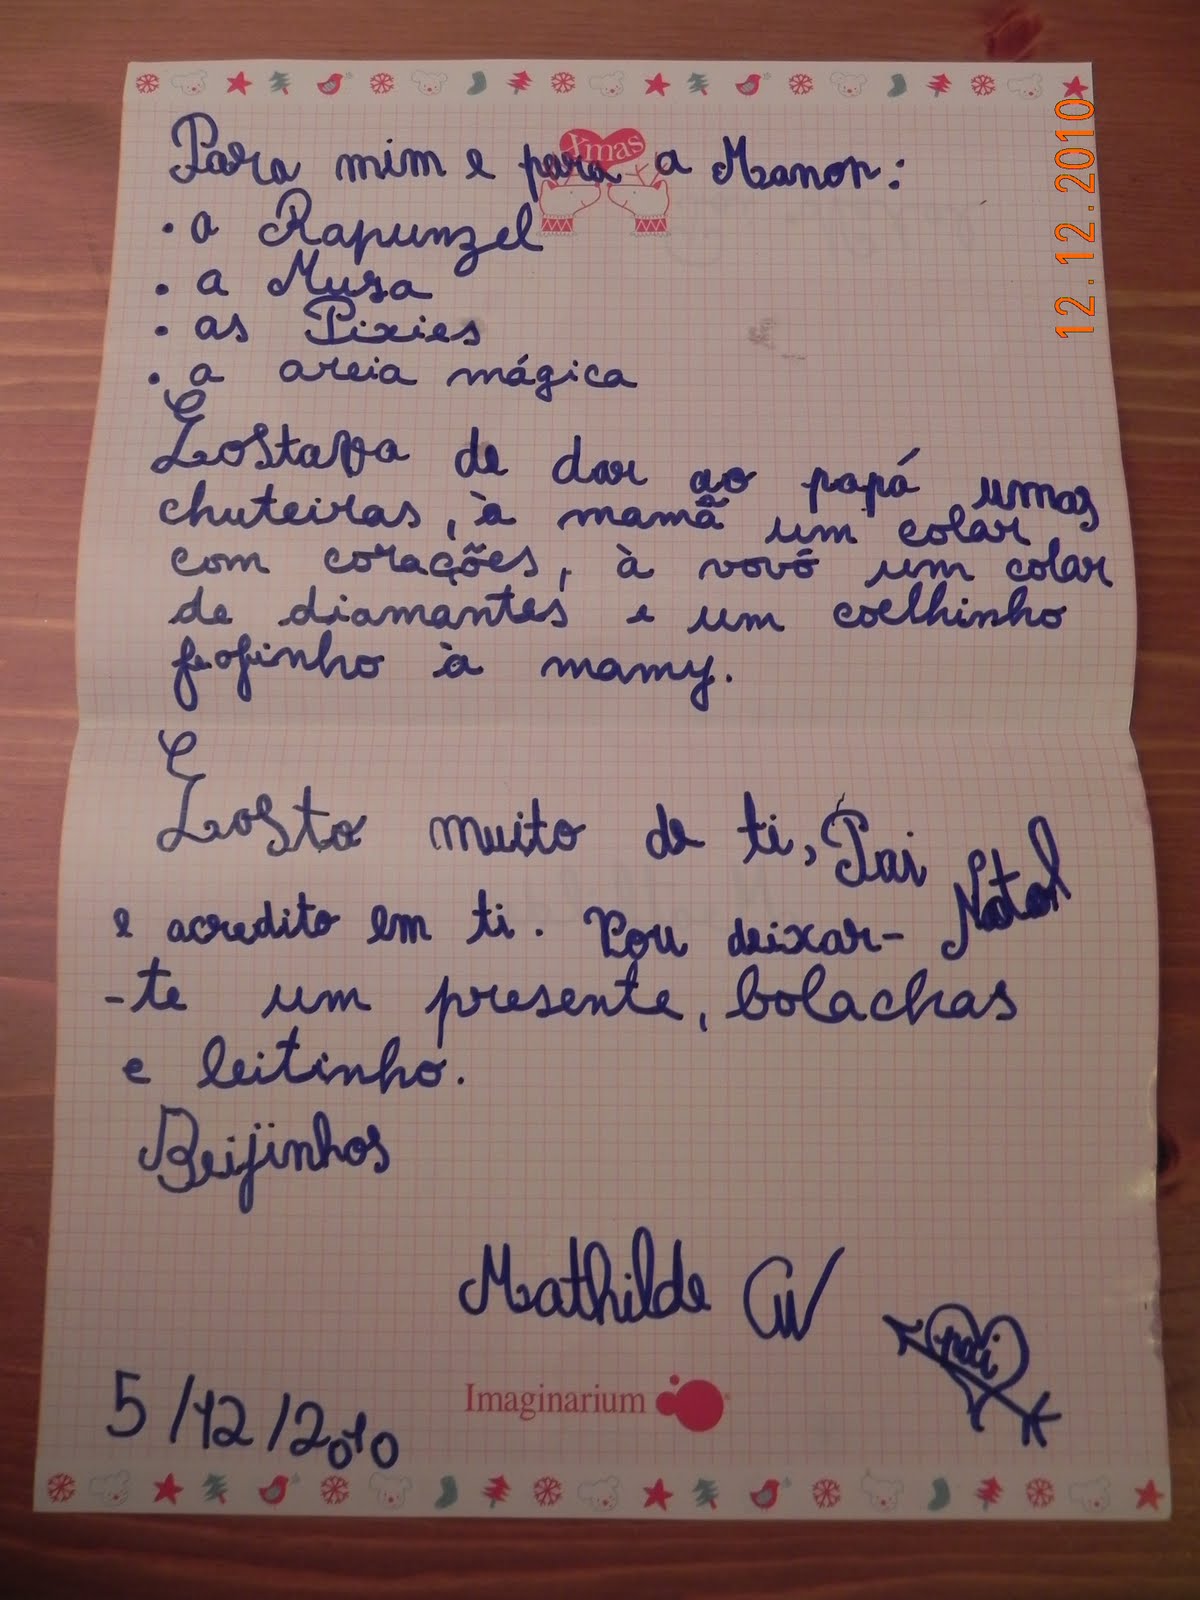 Xmas
Para mim e para a Manon:
. a Rapunzel
. a Musa
. as Pixies
. a areia mágica
Gostava de dar ao papá umas
chuteiras, à mamã um colar
com corações, à vovó um colar
de diamantes e um coelhinho
fofinho à mamy.
Gosto muito de ti, Pai Natal
e acredito em ti. Vou deixar-
-te um presente, bolachas
e leitinho.
Beijinhos
Mathilde
5/12/2010
Imaginarium
12.12.2010